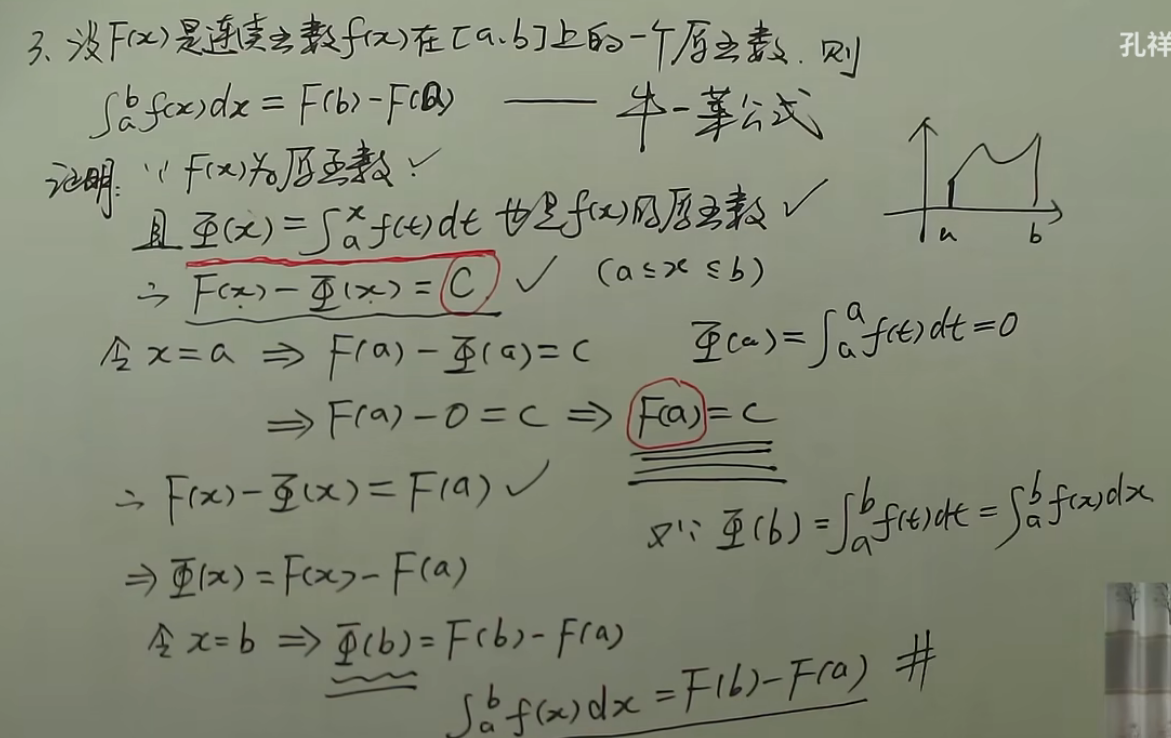 3、设F(x)是连续函数f(x)在[a.b]上的一个原函数.则
孔祥
∫_a^b f(x)dx = F(b)-F(a) —— 牛-莱公式
证明: ∵ F(x)为原函数 ✓
且 Φ(x)=∫_a^x f(t)dt 也是f(x)的原函数 ✓
a b
∴ F(x)-Φ(x)=C ✓ (a≤x≤b)
令 x=a ⇒ F(a)-Φ(a)=C
Φ(a)=∫_a^a f(t)dt=0
⇒ F(a)-0=C ⇒ F(a)=C
∴ F(x)-Φ(x)=F(a) ✓
又∵ Φ(b)=∫_a^b f(t)dt=∫_a^b f(x)dx
⇒ Φ(x)=F(x)-F(a)
令 x=b ⇒ Φ(b)=F(b)-F(a)
∫_a^b f(x)dx=F(b)-F(a) #